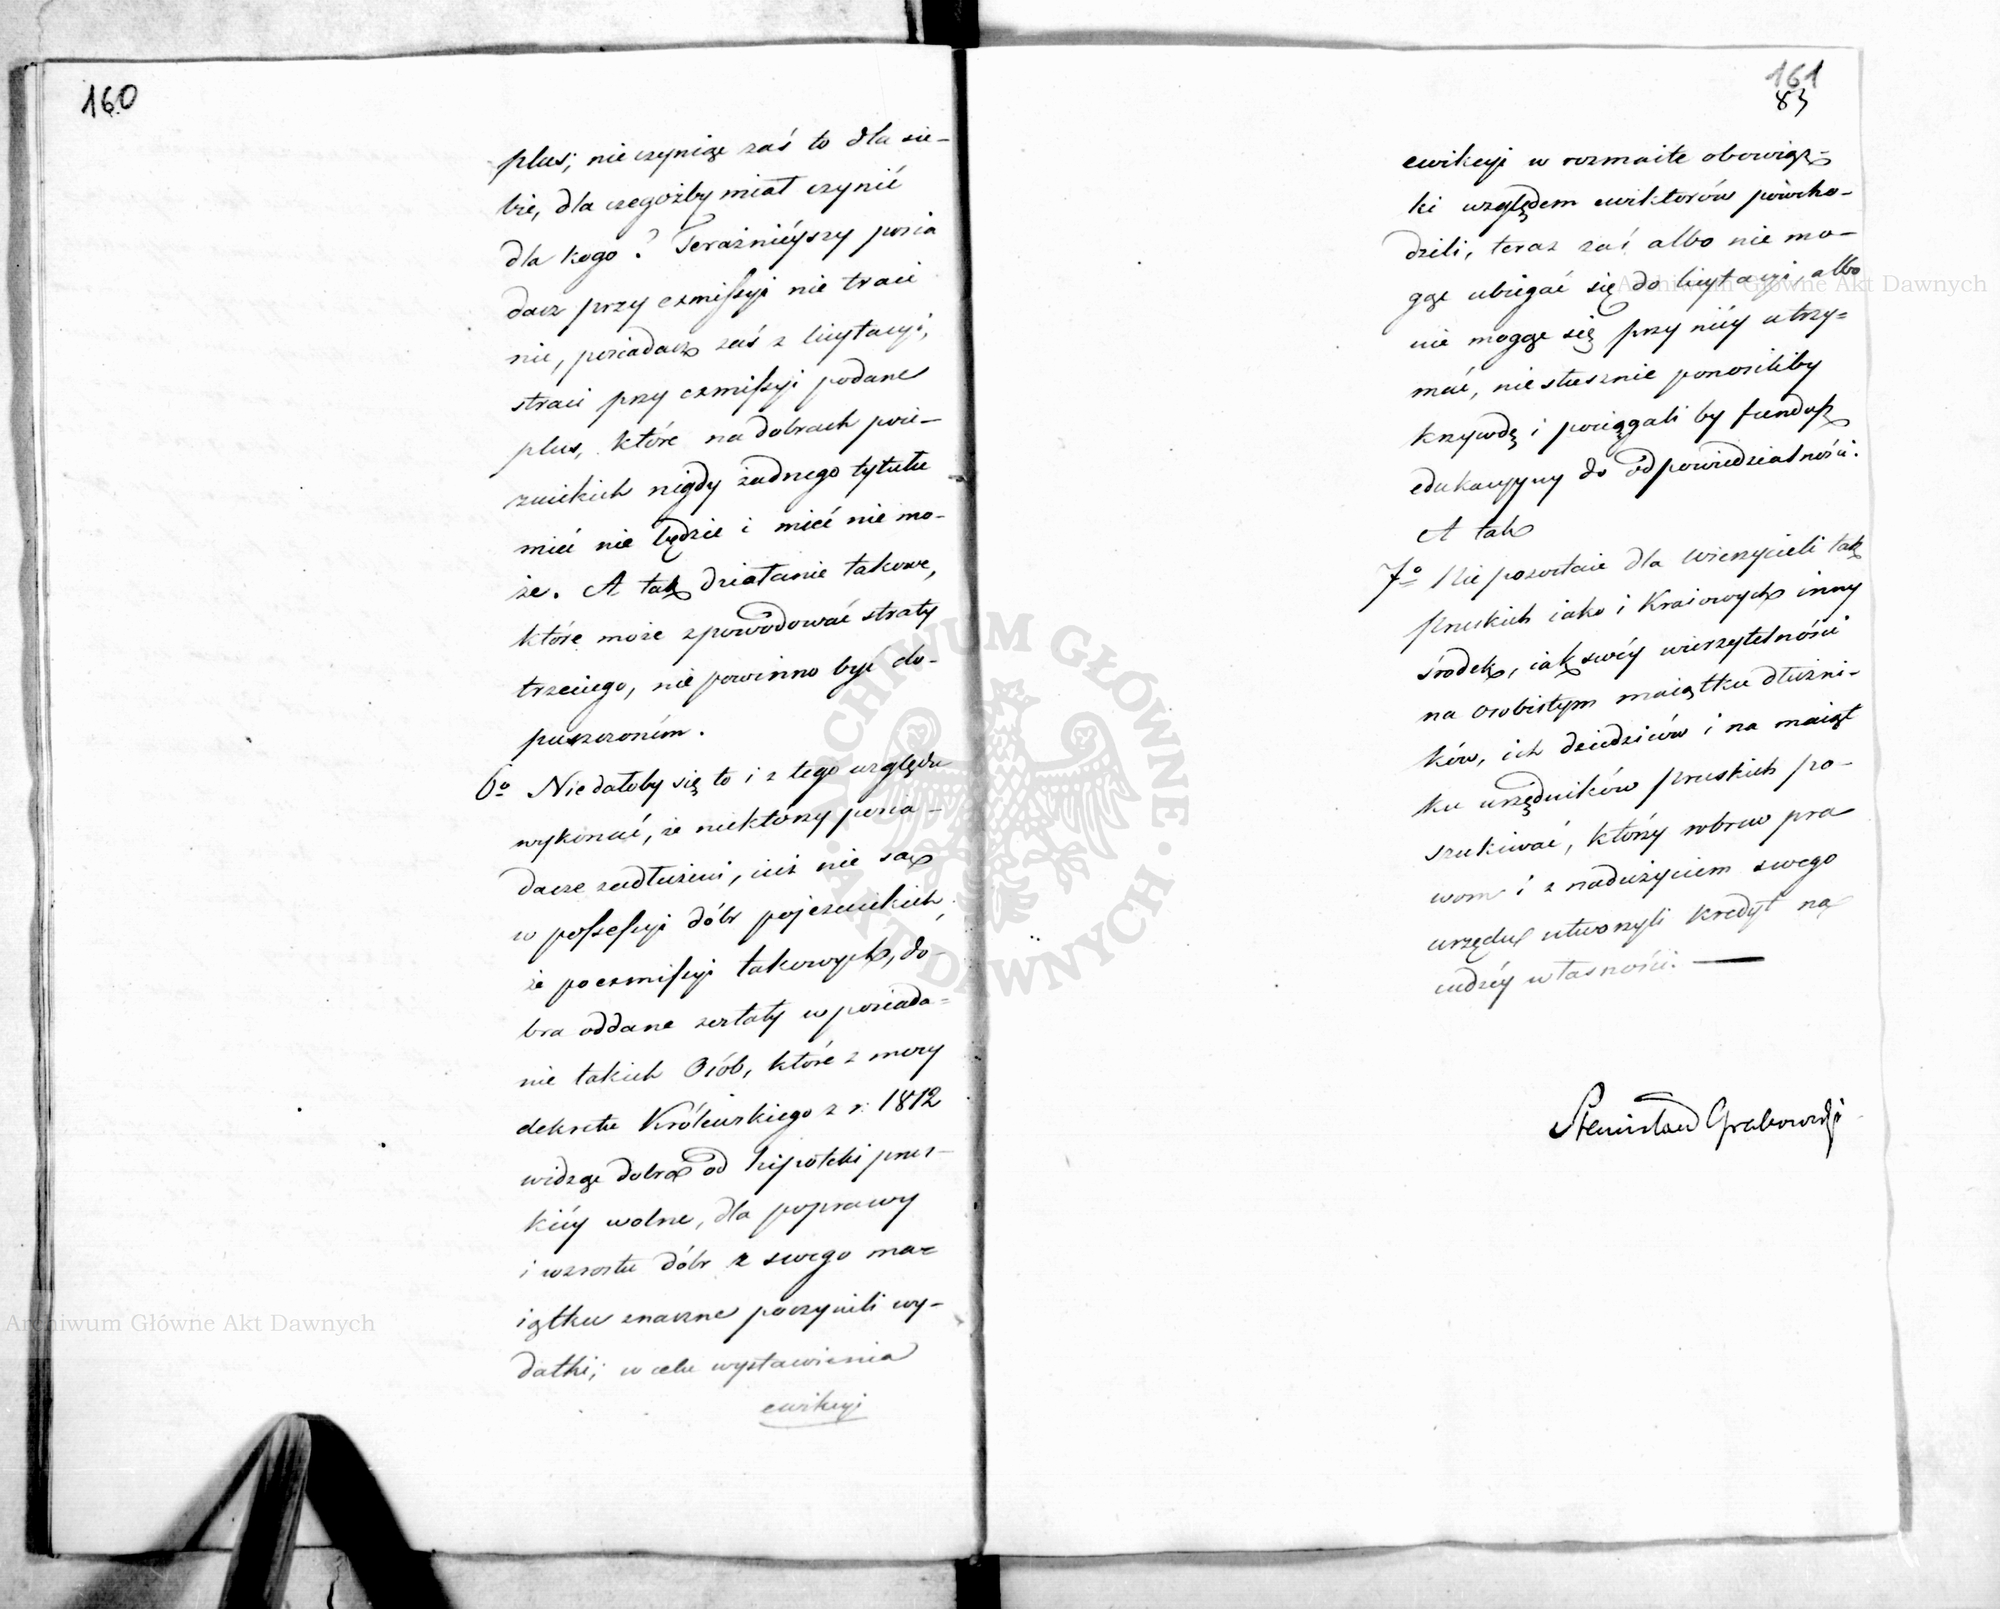 160
plus; nie czyniąc zaś to dla sie-
bie, dla czegożby miał czynić
dla kogo? Teraźnieyszy posia
dacz przy exmissyi nie traci
nic, posiadacz zaś z licytacyi,
straci przy exmissyi podane
plus, które na dobrach poie-
zuickich nigdy żadnego tytułu
mieć nie będzie i mieć nie mo-
że. A tak działanie takowe,
które może spowodować straty
trzeciego, nie powinno być do-
puszczoném.
6o Niedałoby się to i z tego względu
wykonać, że niektórzy posia-
dacze zadłużeni, iuż nie są
w possessyi dóbr pojezuickich,
że po exmissyi takowych, do-
bra oddane zostały w posiada-
nie takich Osób, które z mocy
dekretu Królewskiego z r. 1812
widząc dobra od hipoteki prus-
kiéy wolne, dla poprawy
i wzrostu dóbr z swego ma-
iątku znaczne poczynili wy-
datki; w celu wystawienia
ewikcyi
161
83
ewikcyi w rozmaite obowiąz-
ki względem ewiktorów powcho-
dzili, teraz zaś albo nie mo-
gąc ubiegać się do licytacyi, albo
nie mogąc się przy niéy utrzy-
mać, niesłusznie ponosiliby
krzywdę i pociągali by fundusz
edukacyyny do odpowiedzialności.
A tak
7o Nie pozostaie dla Wierzycieli tak
pruskich iako i Kraiowych inny
środek, iak swéy wierzytelności
na osobistym maiątku dłużni-
ków, ich dziedziców i na maiąt
ku urzędników pruskich po-
szukiwać, którzy wbrew pra
wom i z nadużyciem swego
urzędu utworzyli kredyt na
cudzéy własności. —
Stanisław Grabowski
Archiwum Główne Akt Dawnych
Archiwum Główne Akt Dawnych
ARCHIWUM GŁÓWNE
AKT DAWNYCH